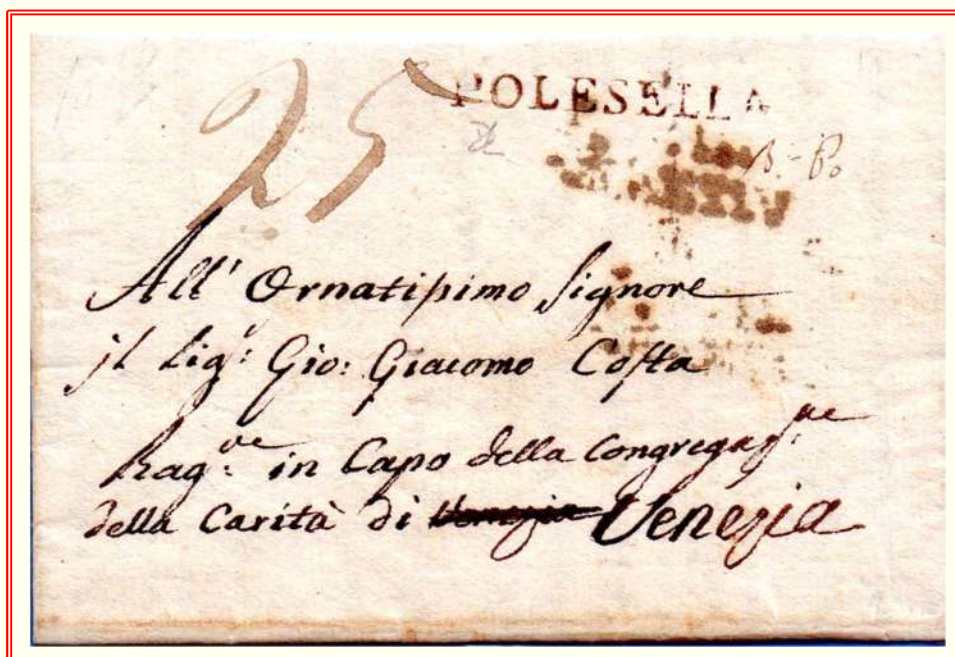 25
POLESELLA
B.-Po
All' Ornatissimo Signore
il Sigʳ: Gio: Giacomo Costa
Ragᵗᵉ: in Capo della Congregazⁿᵉ
della Carità di Venezia Venezia